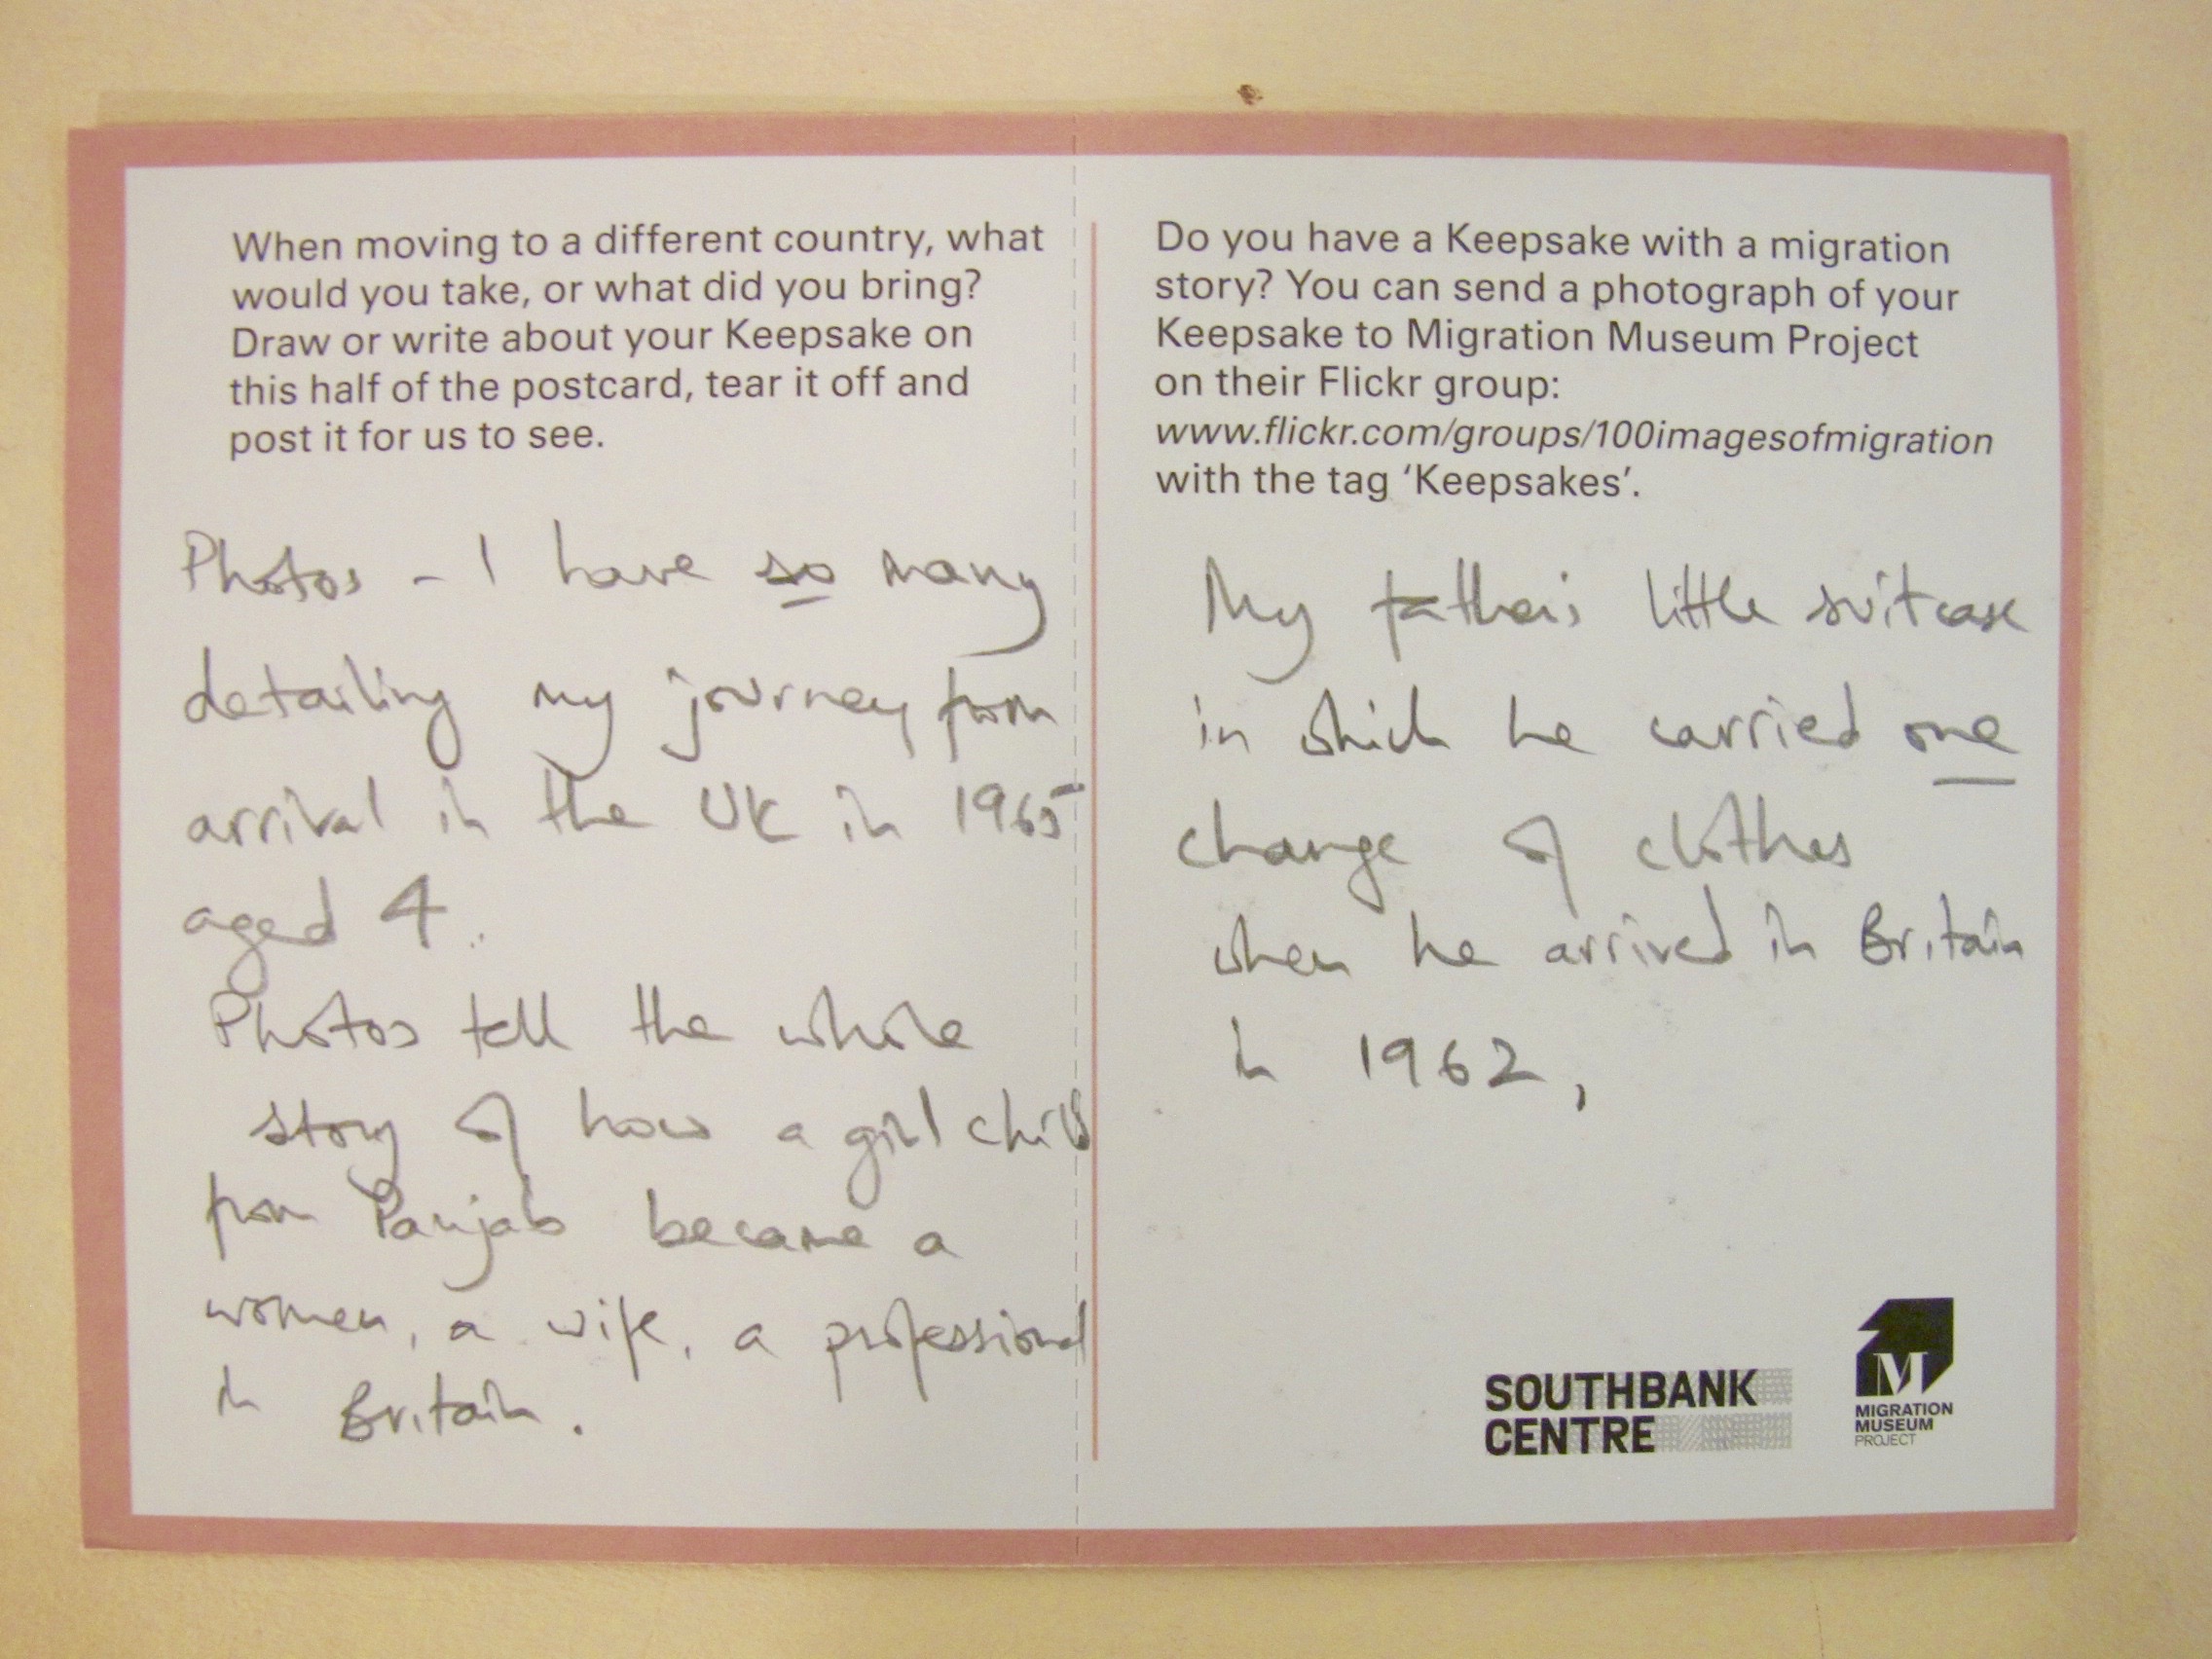 When moving to a different country, what
would you take, or what did you bring?
Draw or write about your Keepsake on
this half of the postcard, tear it off and
post it for us to see.
Photos - I have so many
detailing my journey from
arrival in the UK in 1965
aged 4.
Photos tell the whole
story of how a girl child
from Panjab became a
women, a wife, a professional
in Britain.
Do you have a Keepsake with a migration
story? You can send a photograph of your
Keepsake to Migration Museum Project
on their Flickr group:
www.flickr.com/groups/100imagesofmigration
with the tag ‘Keepsakes’.
My father's little suitcase
in which he carried one
change of clothes
when he arrived in Britain
in 1962,
SOUTHBANK
CENTRE
M
MIGRATION
MUSEUM
PROJECT